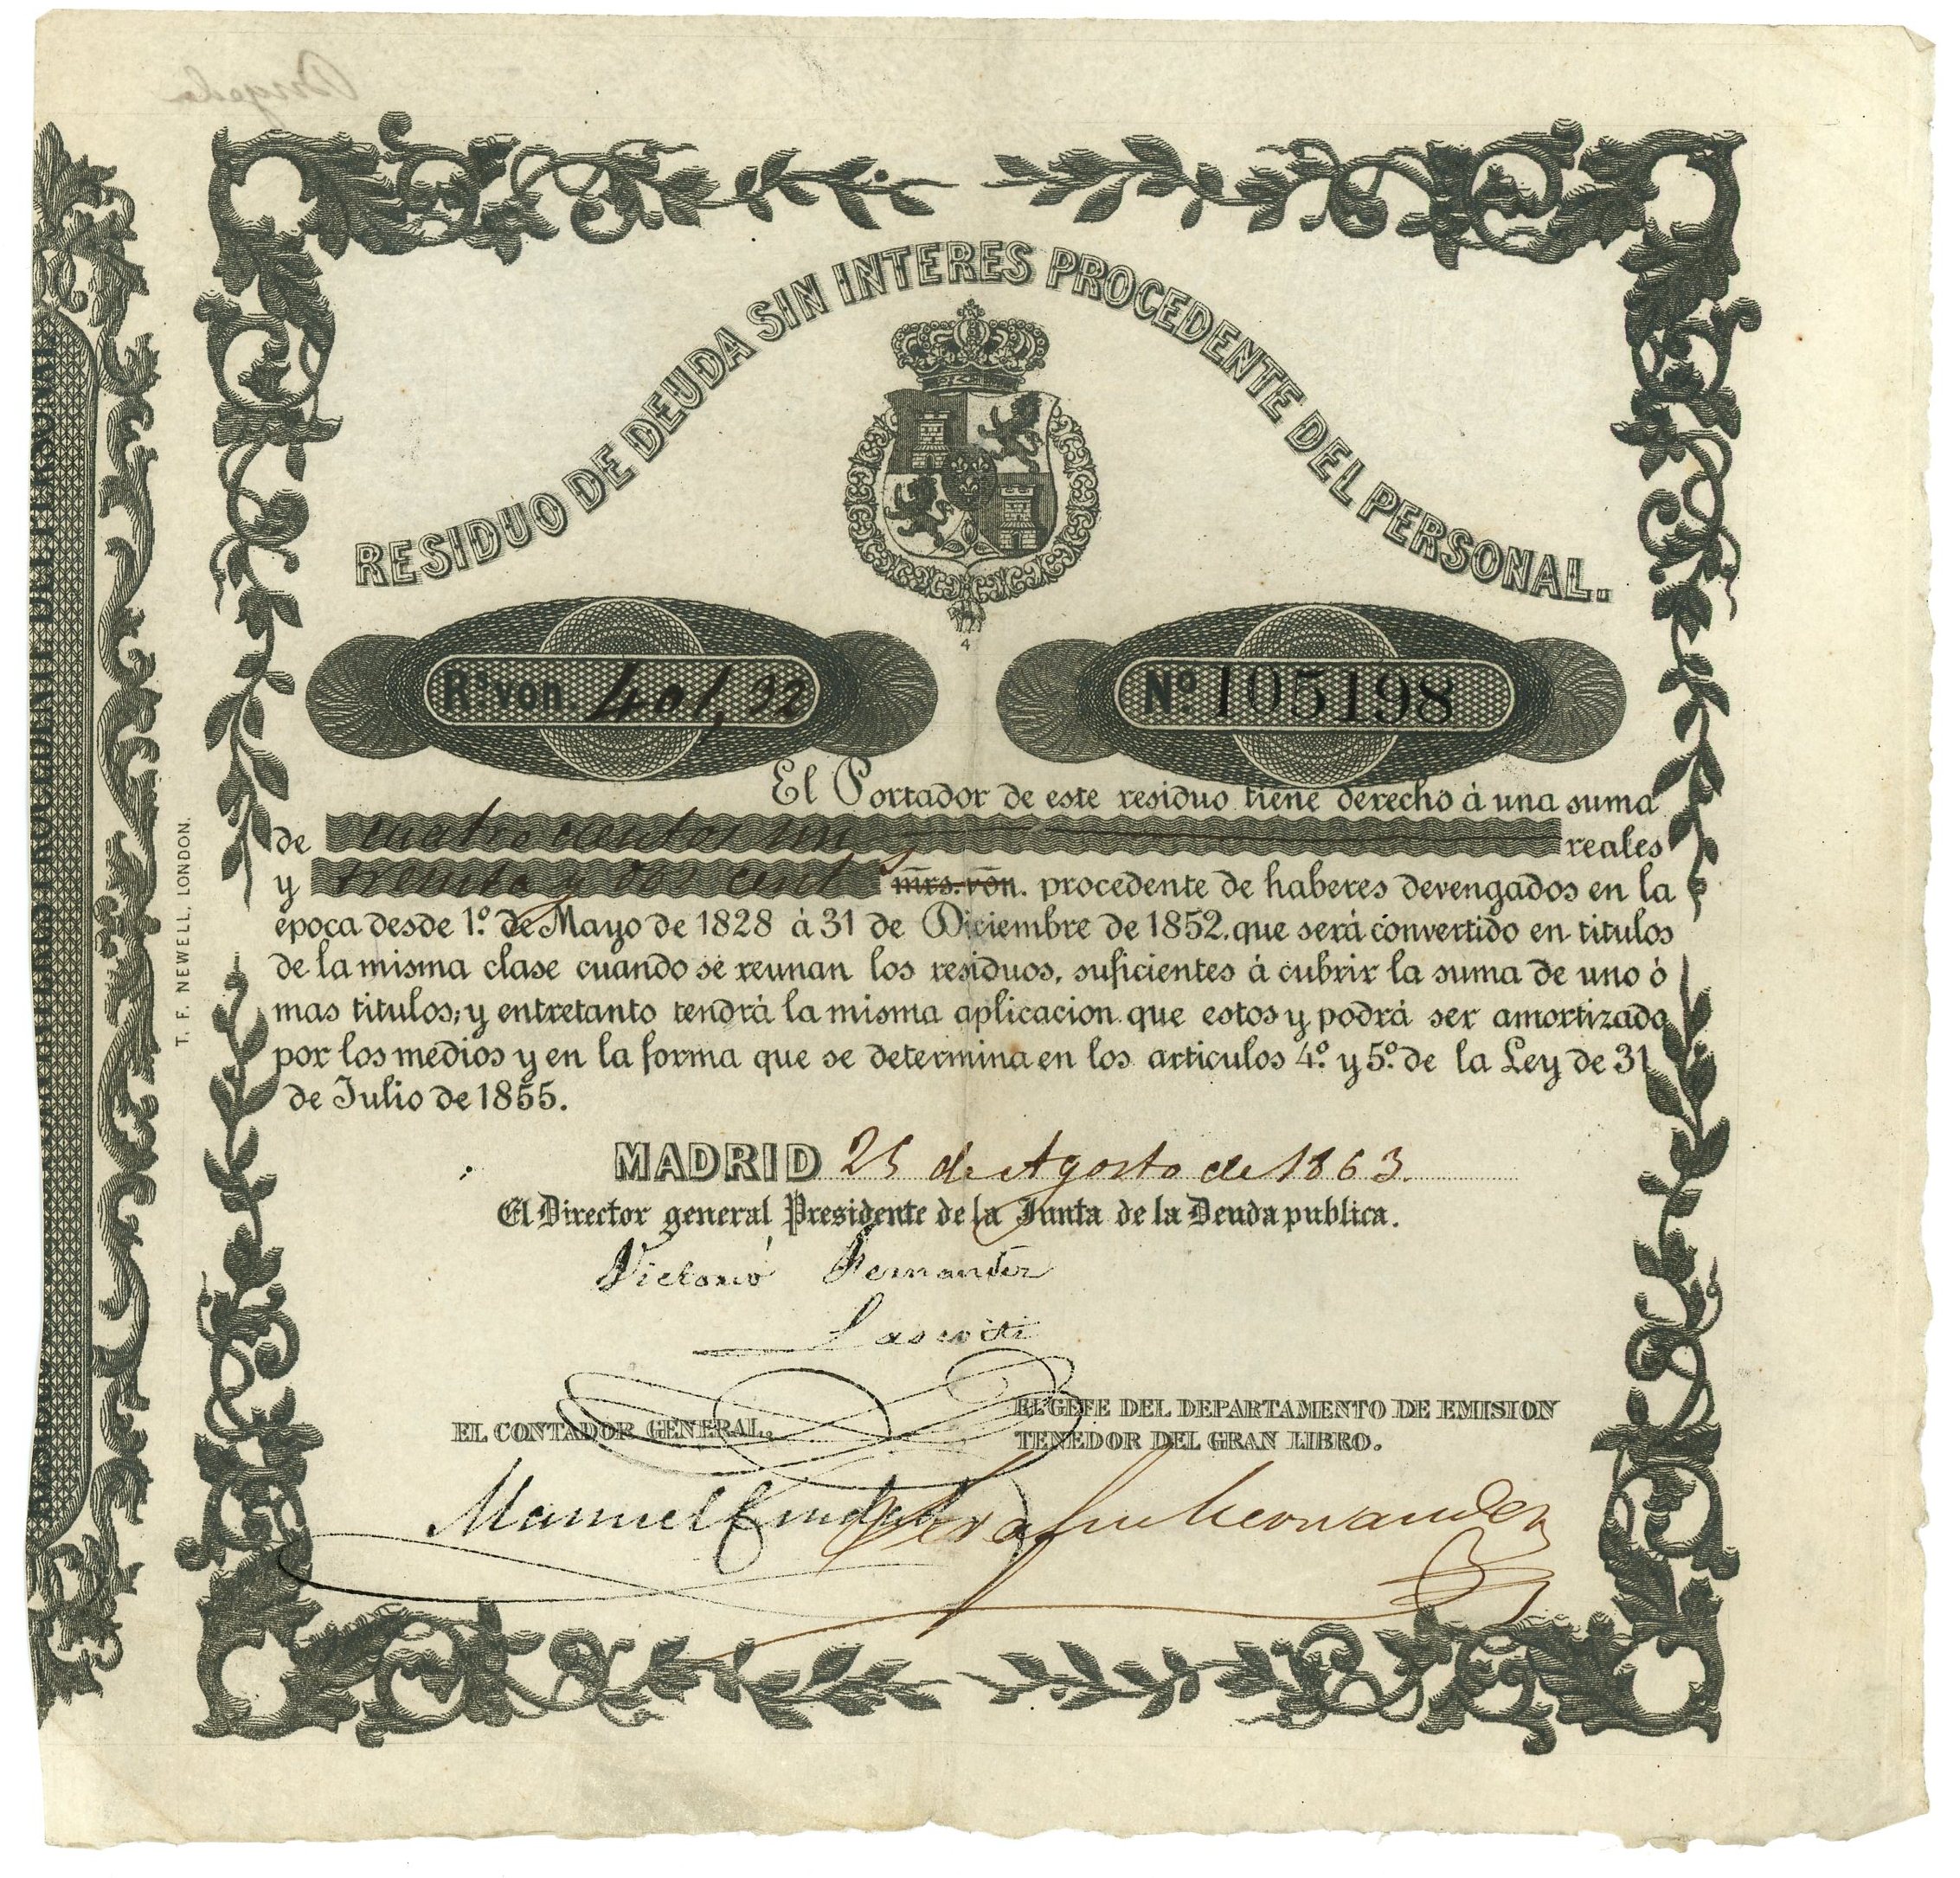 RESIDUO DE DEUDA SIN INTERES PROCEDENTE DEL PERSONAL.
4
Rs von. 401,32
No. 105198
El Portador de este residuo tiene derecho á una suma
de cuatrocientos un reales
y treinta y dos cents mrs. von. procedente de haberes devengados en la
época desde 1º. de Mayo de 1828 á 31 de Diciembre de 1852. que será convertido en titulos
de la misma clase cuando se reunan los residuos, suficientes á cubrir la suma de uno ó
mas titulos; y entretanto tendrá la misma aplicacion que estos y podrá ser amortizado
por los medios y en la forma que se determina en los articulos 4º. y 5º. de la Ley de 31
de Julio de 1855.
MADRID 25 de Agosto de 1863.
El Director general Presidente de la Junta de la Deuda publica.
Victorio Fernandez
Lascoiti
EL CONTADOR GENERAL,
EL GEFE DEL DEPARTAMENTO DE EMISION
TENEDOR DEL GRAN LIBRO.
Manuel
Hernandez
T. F. NEWELL, LONDON.